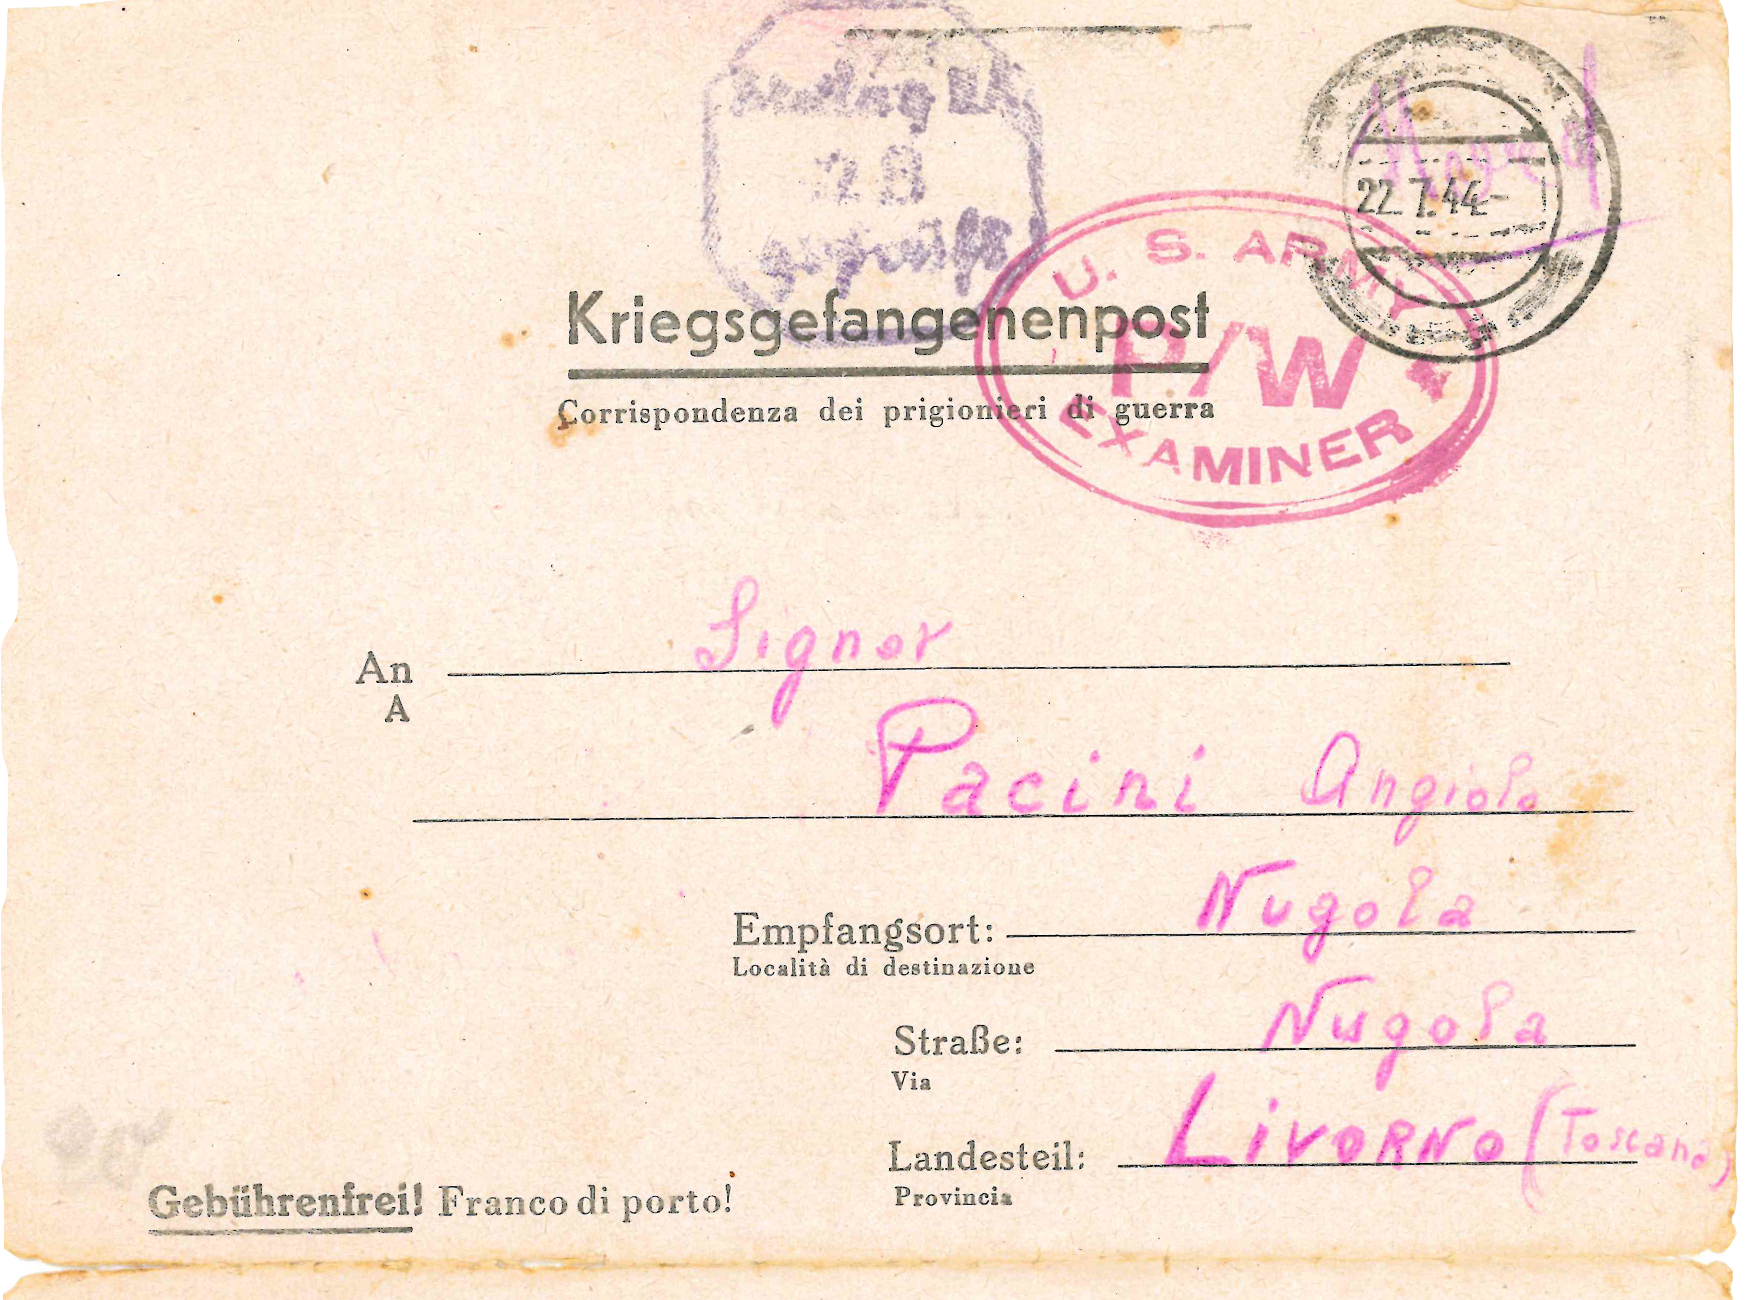 28
geprüft
22.7.44-
U. S. ARMY
P/W
EXAMINER
Kriegsgefangenenpost
Corrispondenza dei prigionieri di guerra
An Signor
A
Pacini Angiolo
Empfangsort: Nugola
Località di destinazione
Straße: Nugola
Via
Landesteil: Livorno (Toscana)
Provincia
Gebührenfrei! Franco di porto!